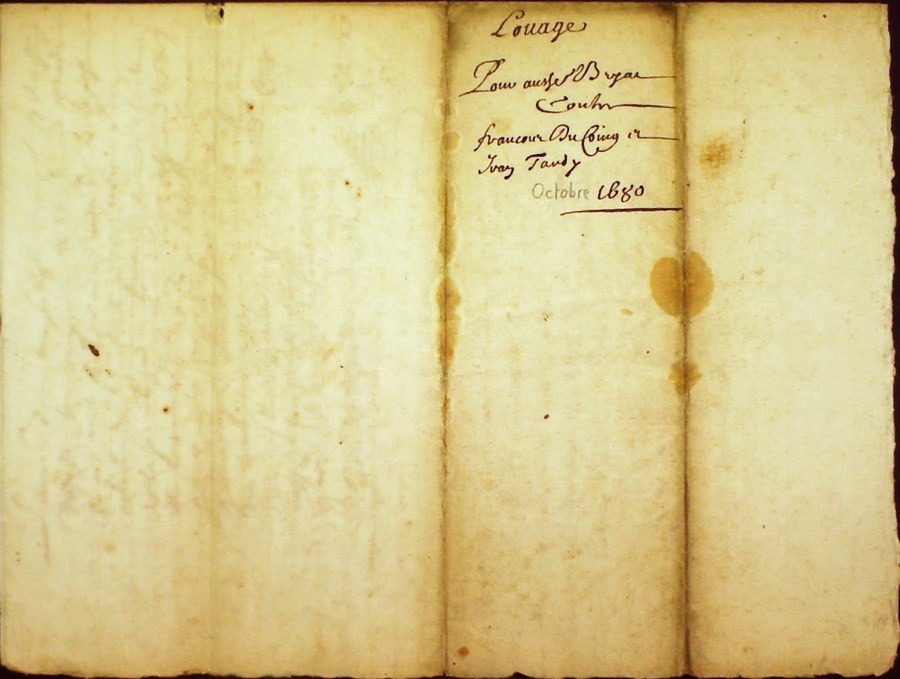 Louage
Pour Bryac
Contre
francois Du Coing et
Tardy
Octobre 1680